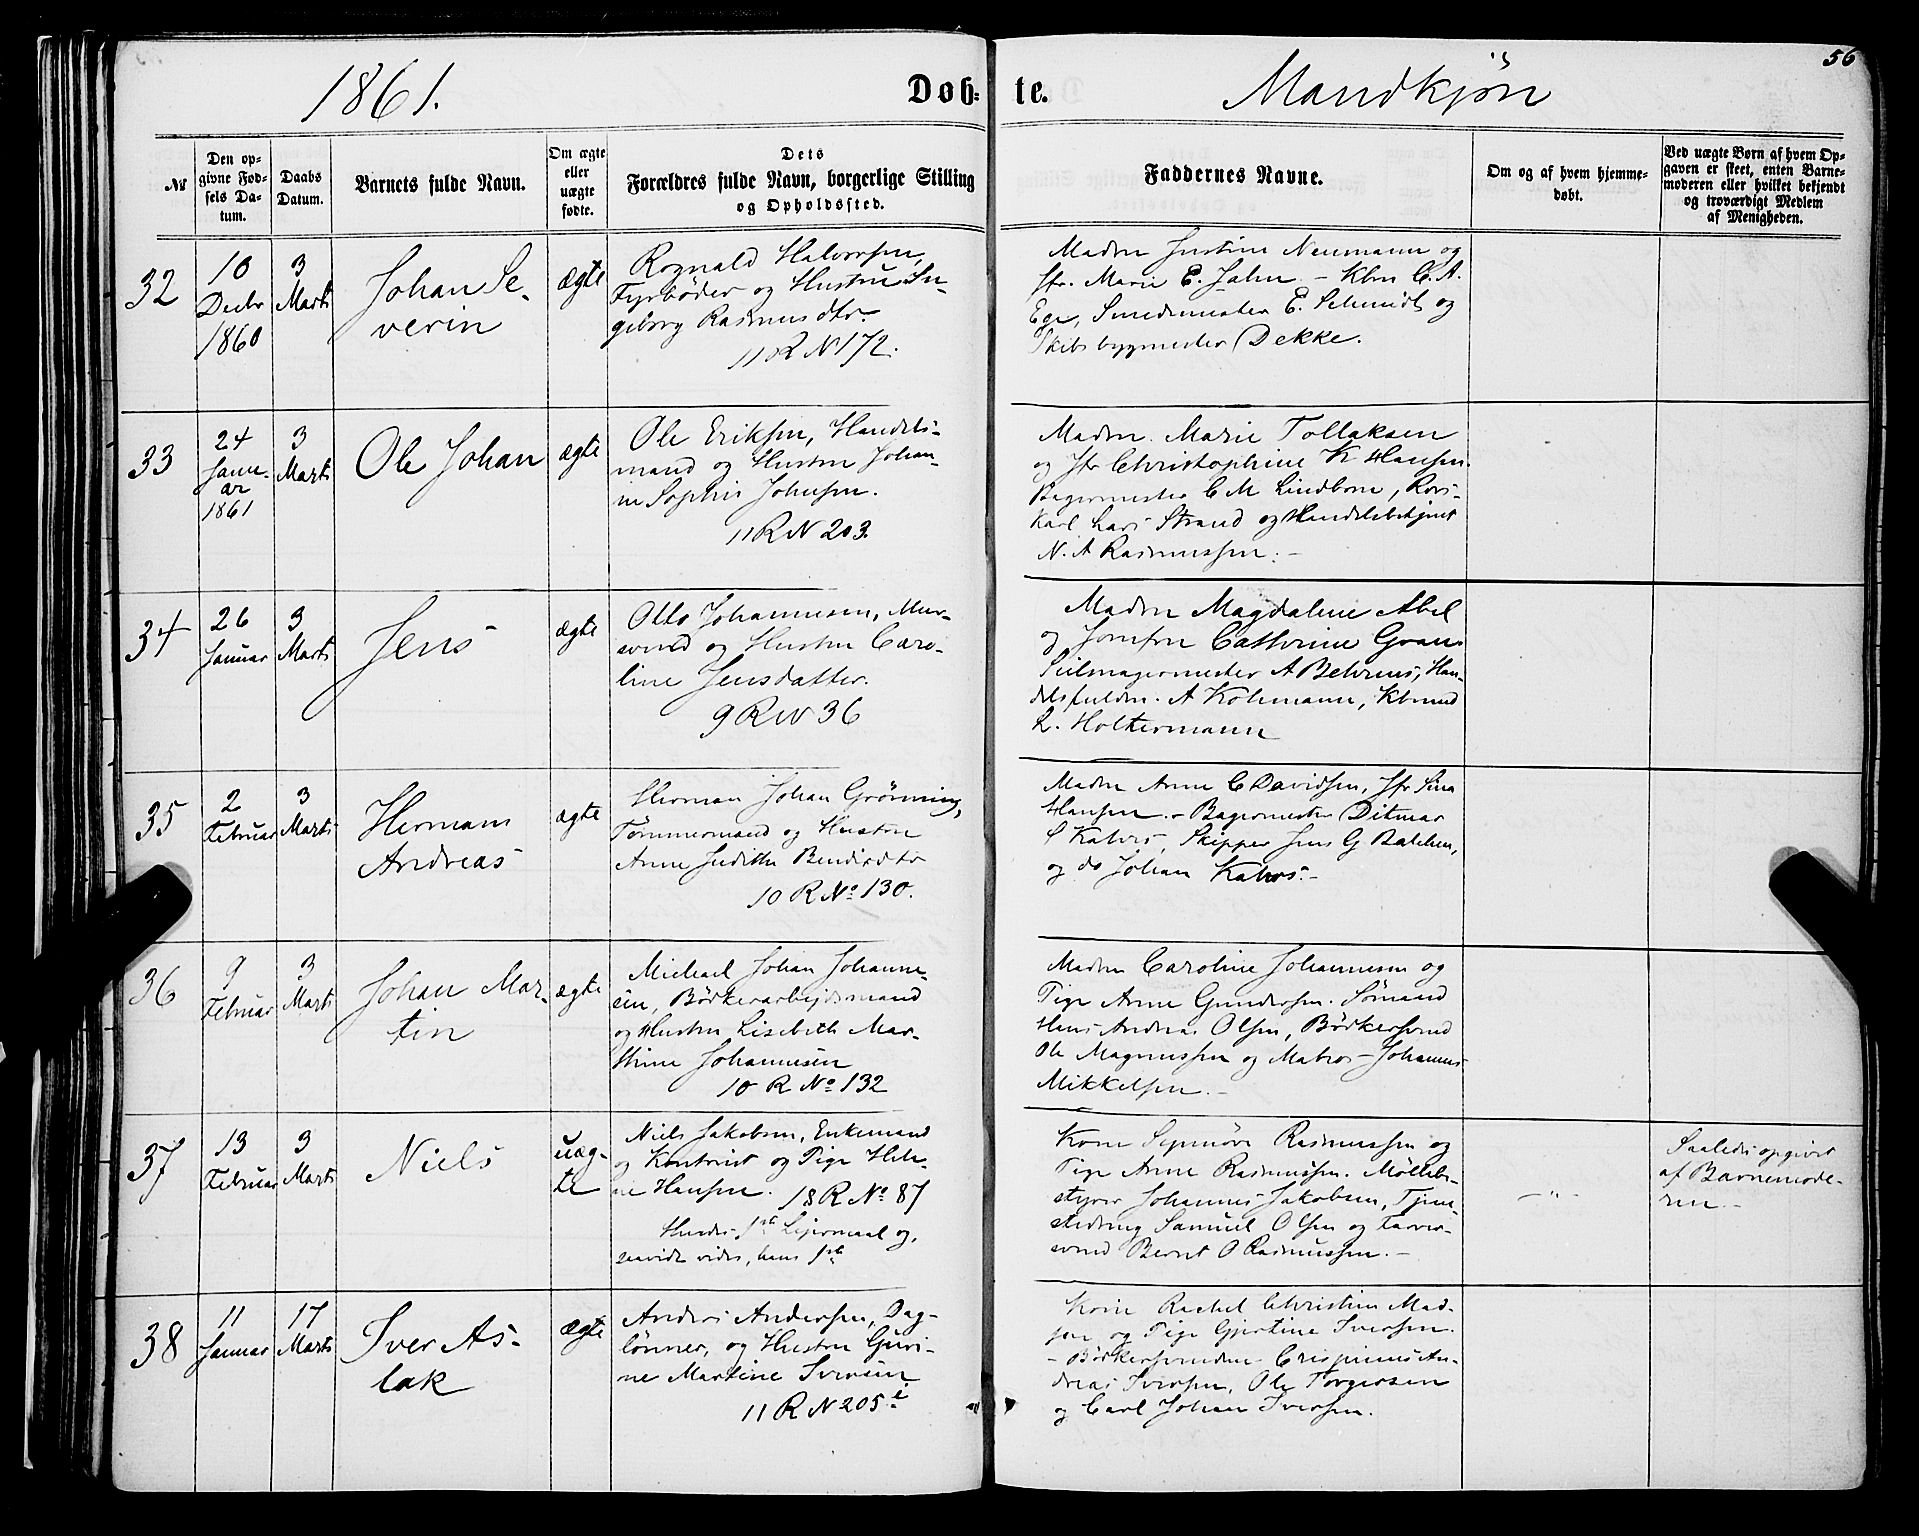 56
1861. Døb- te. Mandkjøn
№
Den op-
givne Fød-
sels Da-
tum.
Daabs
Datum.
Barnets fulde Navn.
Om ægte
eller
uægte
fødte.
Dets
Forældres fulde Navn, borgerlige Stilling
og Opholdssted.
Faddernes Navne.
Om og af hvem hjemme-
døbt.
Ved uægte Børn af hvem Op-
gaven er skeet, enten Barne-
moderen eller hvilket bekjendt
og troværdigt Medlem
af Menigheden.
32
10
Decbr
1860
3
Marts
Johan Se-
verin
ægte
Rognald Halvorsen,
Fyrbøder og Hustru In-
geborg Rasmusdtr.
11 R N 172.
Madm Justine Neumann og
Jfr. Marie E. Jahn - Kbm C. A.
Ege, Smedmester E. Schmidt og
Skibsbygmester Dekke.
33
24
Janu-
ar
1861
3
Marts
Ole Johan
ægte
Ole Eriksen, Handels-
mand og Hustru Johan-
ne Sophie Johnsen.
11 R N 203.
Madm. Marie Tollaksen
og Jfr Christophine K Hansen.
Bagermester C M Lindbom, Rors-
karl Lars Strand og Handelsbetjent
N. A Rasmussen. -
34
26
Januar
3
Marts
Jens
ægte
Otto Johannesen, Mur-
svend og Hustru Caro-
line Jensdatter.
9 R N 36
Madm Magdalene Abel
og Jomfru Cathrine Gran
Seilmagermester A Behrens, Han-
delsfuldm. A Kohmann, Kbmd
L. Holtermann
35
2
Februar
3
Marts
Herman
Andreas
ægte
Herman Johan Grønning,
Tømmermand og Hustru
Anne Judithe Bendixdtr
10 R No 130.
Madm Anne C Davidsen, Jfr Sina
Hansen. - Bagermester Ditmar
S Kahrs, Skipper Jens G Balchen,
og do Johan Kahrs. -
36
9
Februar
3
Marts
Johan Mar-
tin
ægte
Michael Johan Johanne-
sen, Bødkerarbejdsmand
og Hustru Lisebeth Mar-
thine Johannesen
10 R No 132
Madm Caroline Johannesen og
Pige Anne Gundersen. Sømand
Hans Andreas Olsen, Bødkersvend
Ole Magnussen og Matros Johannes
Mikkelsen. -
37
13
Februar
3
Marts
Niels
uæg-
te
Niels Jakobsen, Enkemand
og Kontrist og Pige Hele-
ne Hansen. 18 R No 87
Hendes 1ste Leiermaal og,
saavidt vides, hans 1ste
Kone Synnøve Rasmussen og
Pige Anne Rasmussen. Møllebe-
styrer Johannes Jakobsen, Tjene-
stedreng Samuel Olsen og Farver-
svend Bernt O Rasmussen. -
- " -
Saaledes opgivet
af Barnemode-
ren. -
38
11
Januar
17
Marts
Iver As-
lak
ægte
Anders Andersen, Dag-
lønner, og Hustru Guri-
ne Martine Iversen
11 R N 205 i
Kone Rachel Christine Mad-
sen og Pige Gjertine Iversen.
- Bødkersvendene Crispinus An-
dreas Iversen, Ole Torgersen
og Carl Johan Iversen.